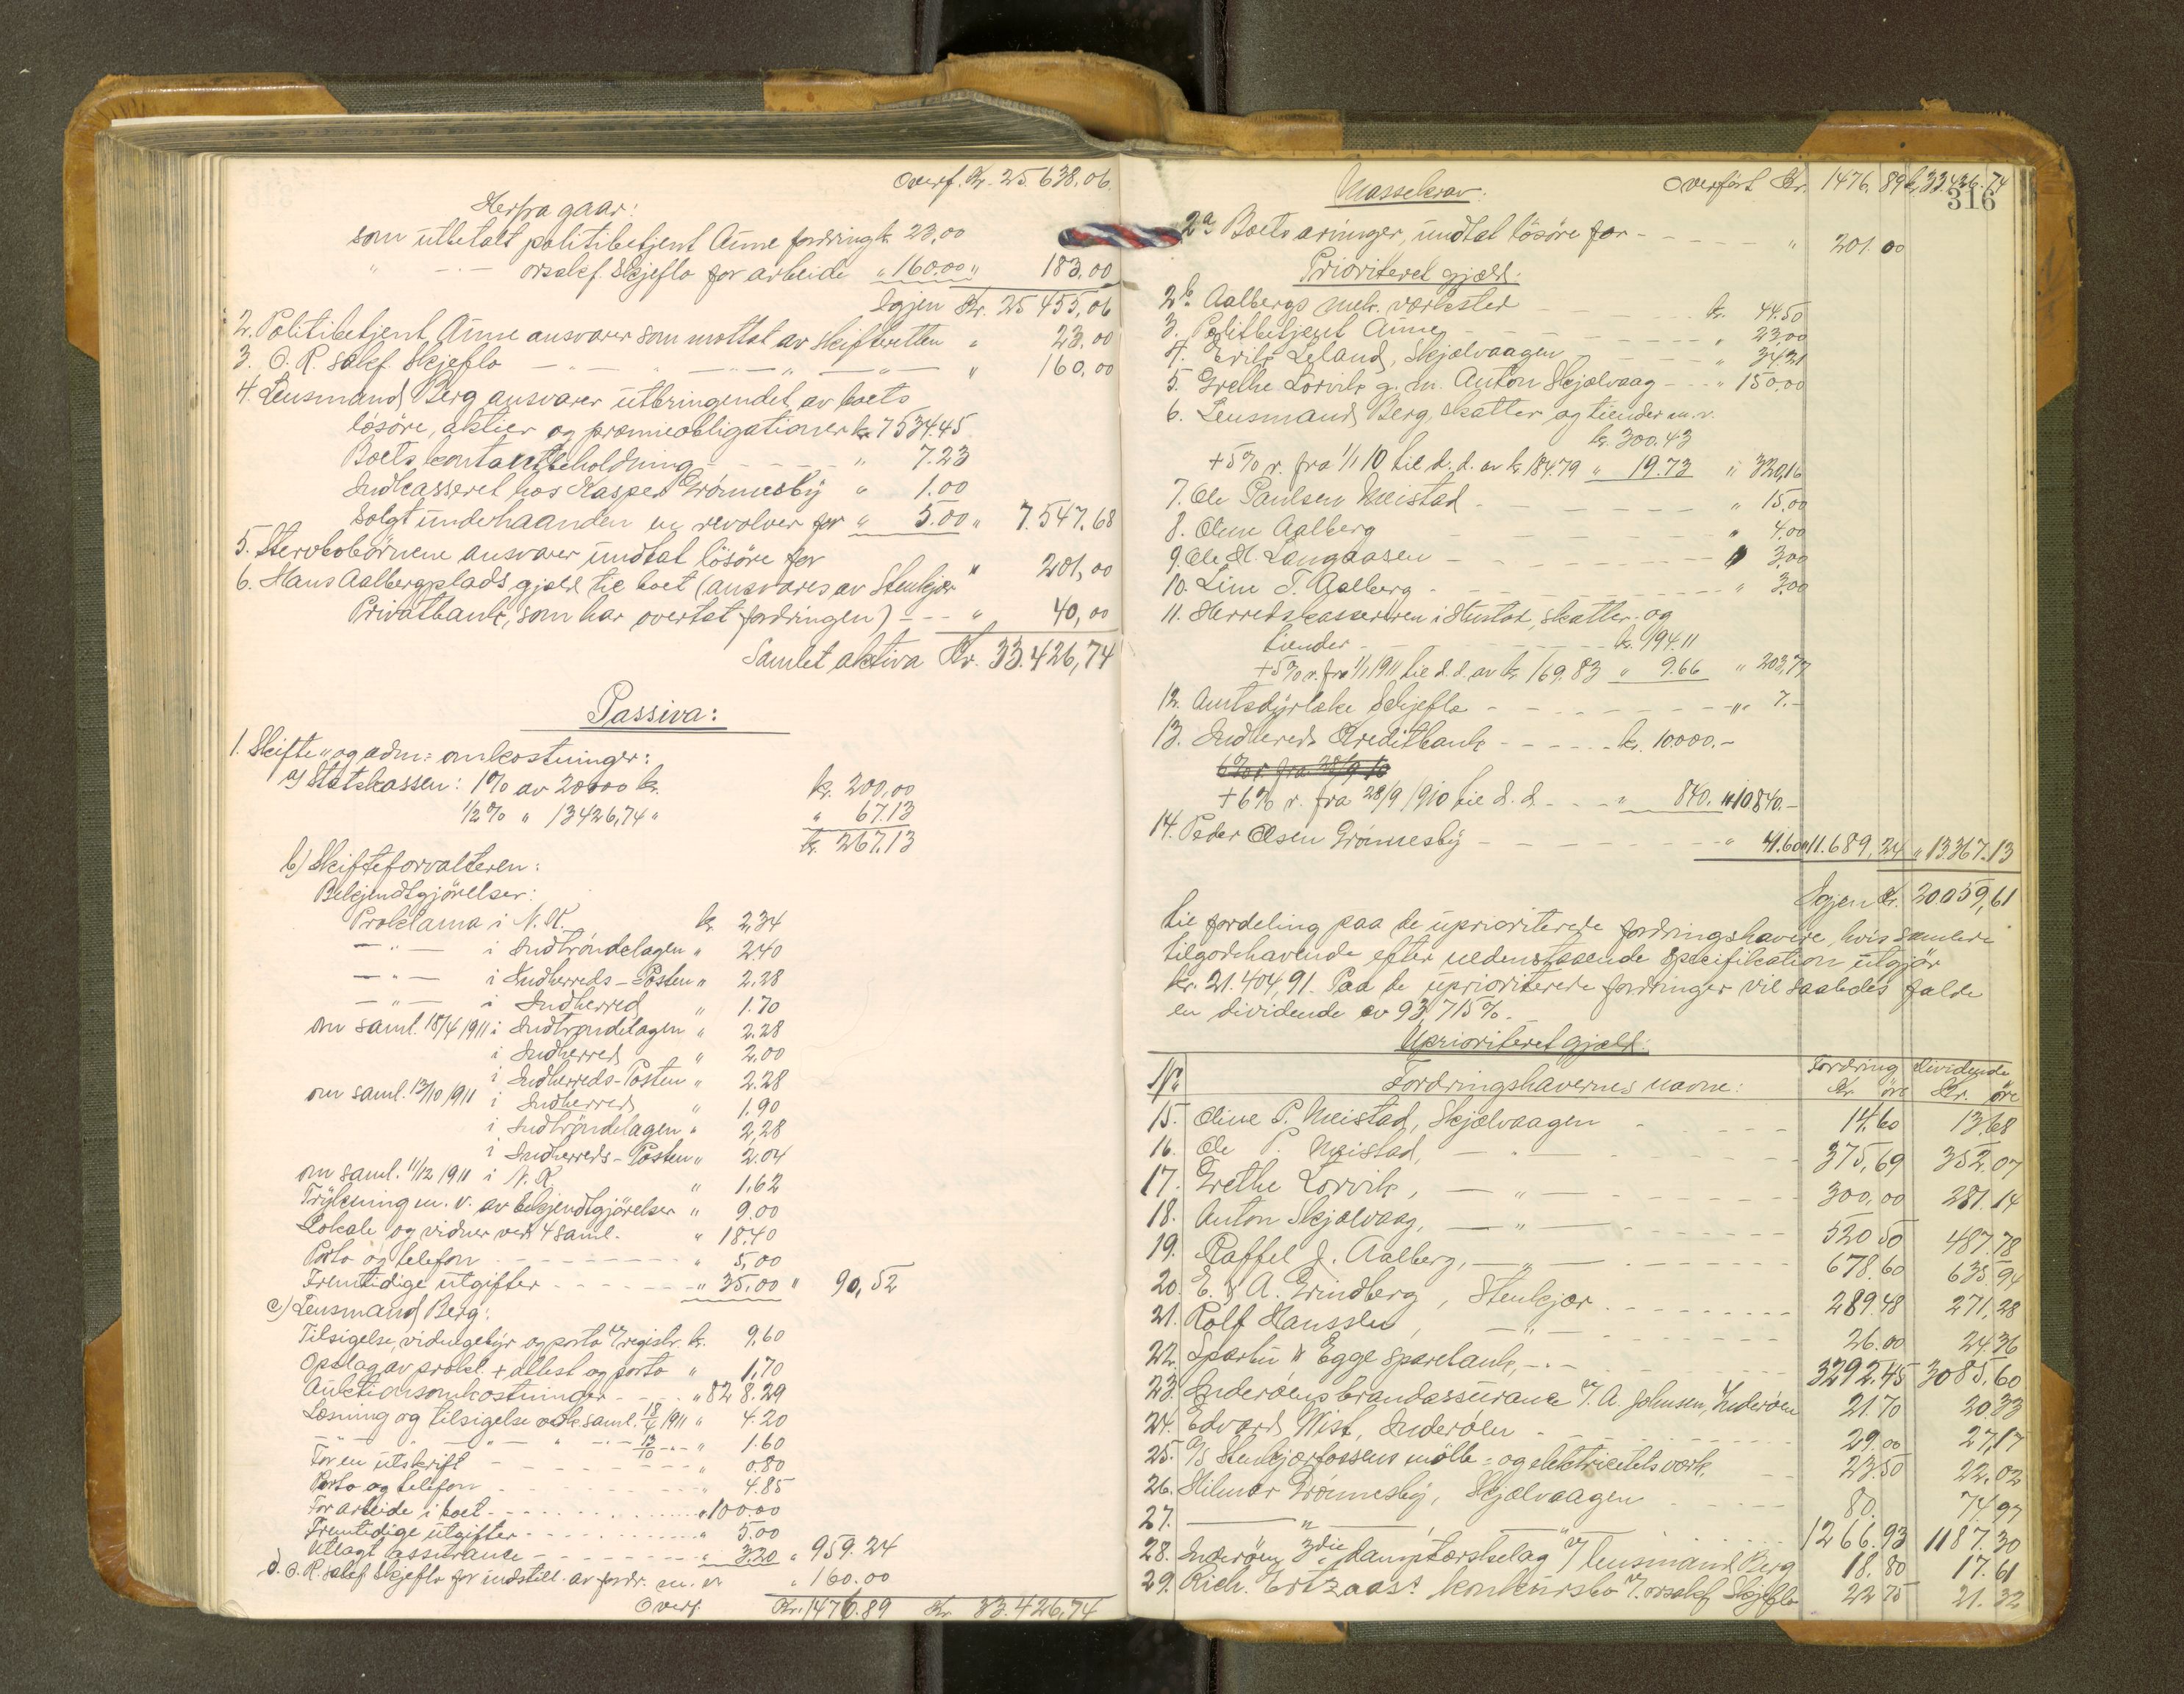 Overf. Kr. 25.638.06.
Herfra gaar:
som utbetalt politibetjent Aune fordring k. 23,00
" -"- orsakf. Skjeflo for arbeide " 160.00 " 183.00
Igjen Kr. 25455,06
2. Politibetjent Aune ansvarer som mottat av skifteretten " 23.00
3. O. R. sakf. Skjeflo —"— —"— —"— " 160,00
4. Lensmand Berg ansvarer utbringendet av boets
lösöre, aktier og premieobligationer kr 7534.45
Boets kontantbeholdning - - - - " 7.23
Indkasseret hos Kasper Grönnesby " 1.00
Solgt underhaanden en revolver for " 5.00 " 7.547.68
5. Stervbobörnene ansvarer undtat lösöre for " 201,00
6. Hans Aalbergplads gjeld til boet (ansvares av Stenkjær
Privatbank, som har overtat fordringen) - - - " 40,00
Samlet aktiva Kr. 33.426,74
Passiva:
1. Skifte- og adm: omkostninger:
a) Statskassen: 1% av 20000 kr. kr. 200,00
1/2% " 13426,74 " " 67.13
kr. 267.13
b) Skifteforvalteren:
Bekjendtgjörelser:
Proklama i N. K. kr. 2,34
—"— i Indtröndelagen " 2.40
—"— i Indherreds-Posten " 2.28
—"— i Indherred " 1.70
om saml. 18/4 1911 i Indtröndelagen " 2.28
i Indherred " 2.00
i Indherreds-Posten " 2.28
om saml. 13/10 1911 i Indherred " 1.90
i Indtröndelagen " 2,28
i Indherreds-Posten " 2.04
om saml. 11/12 1911 i N. K. " 1.62
Trykning m. v. av bekjendtgjörelser " 9.00
Lokale og vidner ved 4 saml. " 18.40
Porto og telefon - - - " 5,00
Fremtidige utgifter - - - - - " 35.00 " 90,52
c) Lensmand Berg:
Tilsigelse, vidnegebyr og porto v/ registr. kr. 9,60
Opslag av prokl. + attest og porto " 1,70
Auktionsomkostninger - - - " 828.29
Læsning og tilsigelse ved saml. 18/4 1911 " 4.20
—"— " — " — 13/10 -"- " 1.60
For en utskrift - - - - " 0.80
Porto og telefon - - - " 4.85
For arbeide i boet - - - - " 100.00
Fremtidige utgifter - - - - " 5.00
Utlagt assurance - - - - " 3.20 " 959.24
d. O. R. sakf. Skjeflo for indstill. av fordr. m. v. " 160.00
Overf. Kr. 1476.89 Kr. 33.426,74
Massekrav. Overfört Kr. 1476.89 k. 33.426.74
316
2a Boets arvinger, undtat lösöre for - - - - " 201.00
Prioriteret gjæld:
2b. Aalbergs mek. værksted - - - kr. 44.50
3. Politibetjent Aune - - - " 23,00
4. Erik Leland, Skjælvaagen - - - " 34.21
5. Grethe Lorvik g. m. Anton Skjælvaag - - " 150,00
6. Lensmand Berg, skatter og tiender m. v.
kr. 300.43
+5% r. fra 1/1 10 til d. d. av kr 184.79 " 19.73 " 320,16
7. Ole Paulsen Meistad - - - - " 15,00
8. Oline Aalberg - - - " 4,00
9. Ole H. Langaasen - - - " 3,00
10. Line T. Aalberg - - - " 3,00
11. Herredskassereren i Hustad, skatter og
tiender - - - kr. 194.11
+5% r. fra 1/1 1911 til d. d. av kr 169,83 " 9.66 " 203,77
12. Amtsdyrlæke Skjeflo - - - - " 7.-
13. Indhereds Kreditbank - - - - kr. 10000.-
6% r. fra 28/9 10
+6% r. fra 28/9 1910 til d. d. - - - " 840. " 10840.-
14. Peder Olsen Grönnesby - - - - " 41.60 " 11.689,24 " 13.367.13
Igjen Kr. 20059,61
til fordeling paa de uprioriterede fordringshavere, hvis samlede
tilgodehavende efter nedenstaaende specifikation utgjör
kr. 21.404,91. Paa de uprioriterede fordringer vil saaledes falde
en dividende av 93,715%.
Uprioriteret gjæld:
No Fordringshavernes navne: Fordring Kr. öre Dividende Kr. öre
15. Oline P. Meistad, Skjælvaagen - - - 14,60 13.68
16. Ole P. Meistad, —"— - - - 375,69 352.07
17. Grethe Lorvik, —"— - - - 300,00 281.14
18. Anton Skjælvaag, —"— - - - 520 50 487.78
19. Raffel J. Aalberg, —"— - - - 678.60 635.94
20. E. & A. Grindberg, Stenkjær - - - 289.48 271,28
21. Rolf Hanssen, —"— - - - 26.00 24.36
22. Sparbu & Egge sparebank, - - - 3292.45 3085.60
23. Inderöens brandassurance v/ A. Johnsen, Inderöen 21.70 20.33
24. Edvard Wist, Inderöen - - - 29.00 27,17
25. A/S Stenkjærfossens mölle- og elektricitetsverk. 23.50 22.02
26. Hilmar Grönnesby, Skjælvaagen - - - 80. 74.97
27. —"—, —"— 1266.93 1187.30
28. Inderöens 3die damptærskelag v/ lensmand Berg 18.80 17.61
29. Rich. Ertzaas: konkursbo v/ orsakf. Skjeflo 22 75 21.32